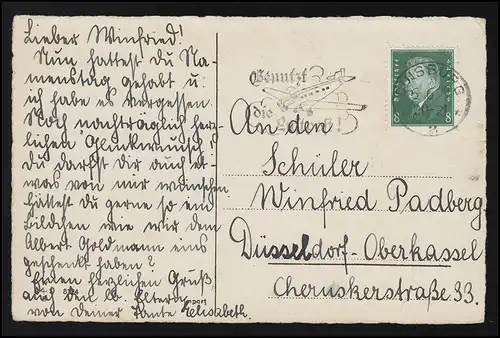 Lieber Winfried!
Nun hattest Du Na-
menstag gehabt u.
ich habe es vergessen.
Noch nachträglich herz-
lichen Glückwunsch!
Du darfst Dir auch et-
was von mir wünschen
hättest Du gerne so ein
Bildchen wie wir dem
Albert Goldmann eins
geschenkt haben?
Einen herzlichen Gruß,
auch den lb. Eltern
von Deiner Tante Elisabeth.
Benutzt
die
!
8 8
An den
Schüler
Winfried Padberg
Düsseldorf-Oberkassel
Cheruskerstraße 33.